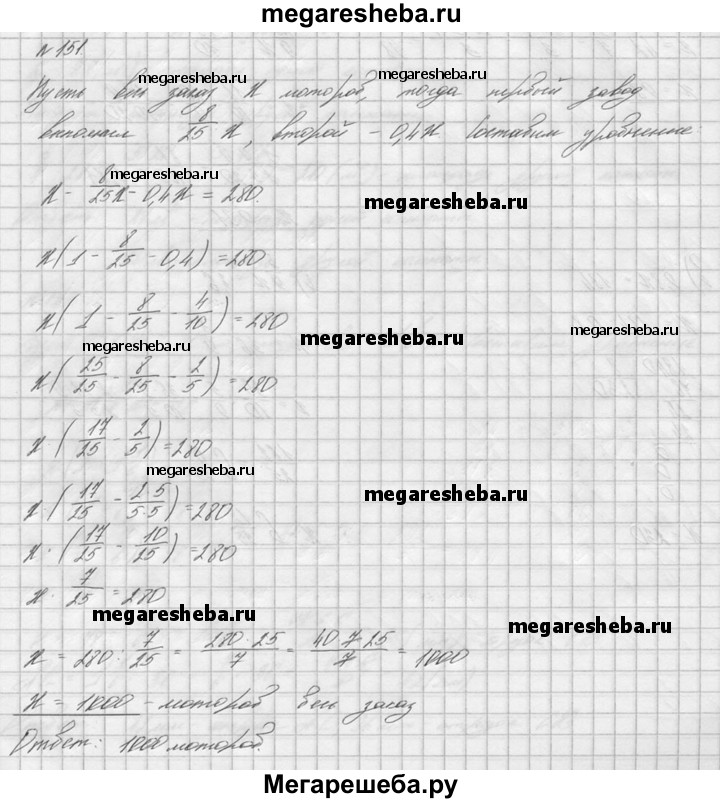 megaresheba.ru
№ 151.
megaresheba.ru megaresheba.ru
Пусть весь заказ x моторов, тогда первый завод
выполнил 8/25 x, второй - 0,4x. Составим уравнение:
megaresheba.ru
x - 8/25x - 0,4x = 280.
megaresheba.ru
x(1 - 8/25 - 0,4) = 280
megaresheba.ru
x(1 - 8/25 - 4/10) = 280
megaresheba.ru megaresheba.ru megaresheba.ru
x(25/25 - 8/25 - 2/5) = 280
x (17/25 - 2/5) = 280
megaresheba.ru
x·(17/25 - 2·5/5·5) = 280
megaresheba.ru
x·(17/25 - 10/25) = 280
x · 7/25 = 280
megaresheba.ru megaresheba.ru
x = 280 : 7/25 = 280·25/7 = 40·7·25/7 = 1000
x = 1000 - моторов весь заказ
Ответ: 1000 моторов.
Мегарешеба.ру